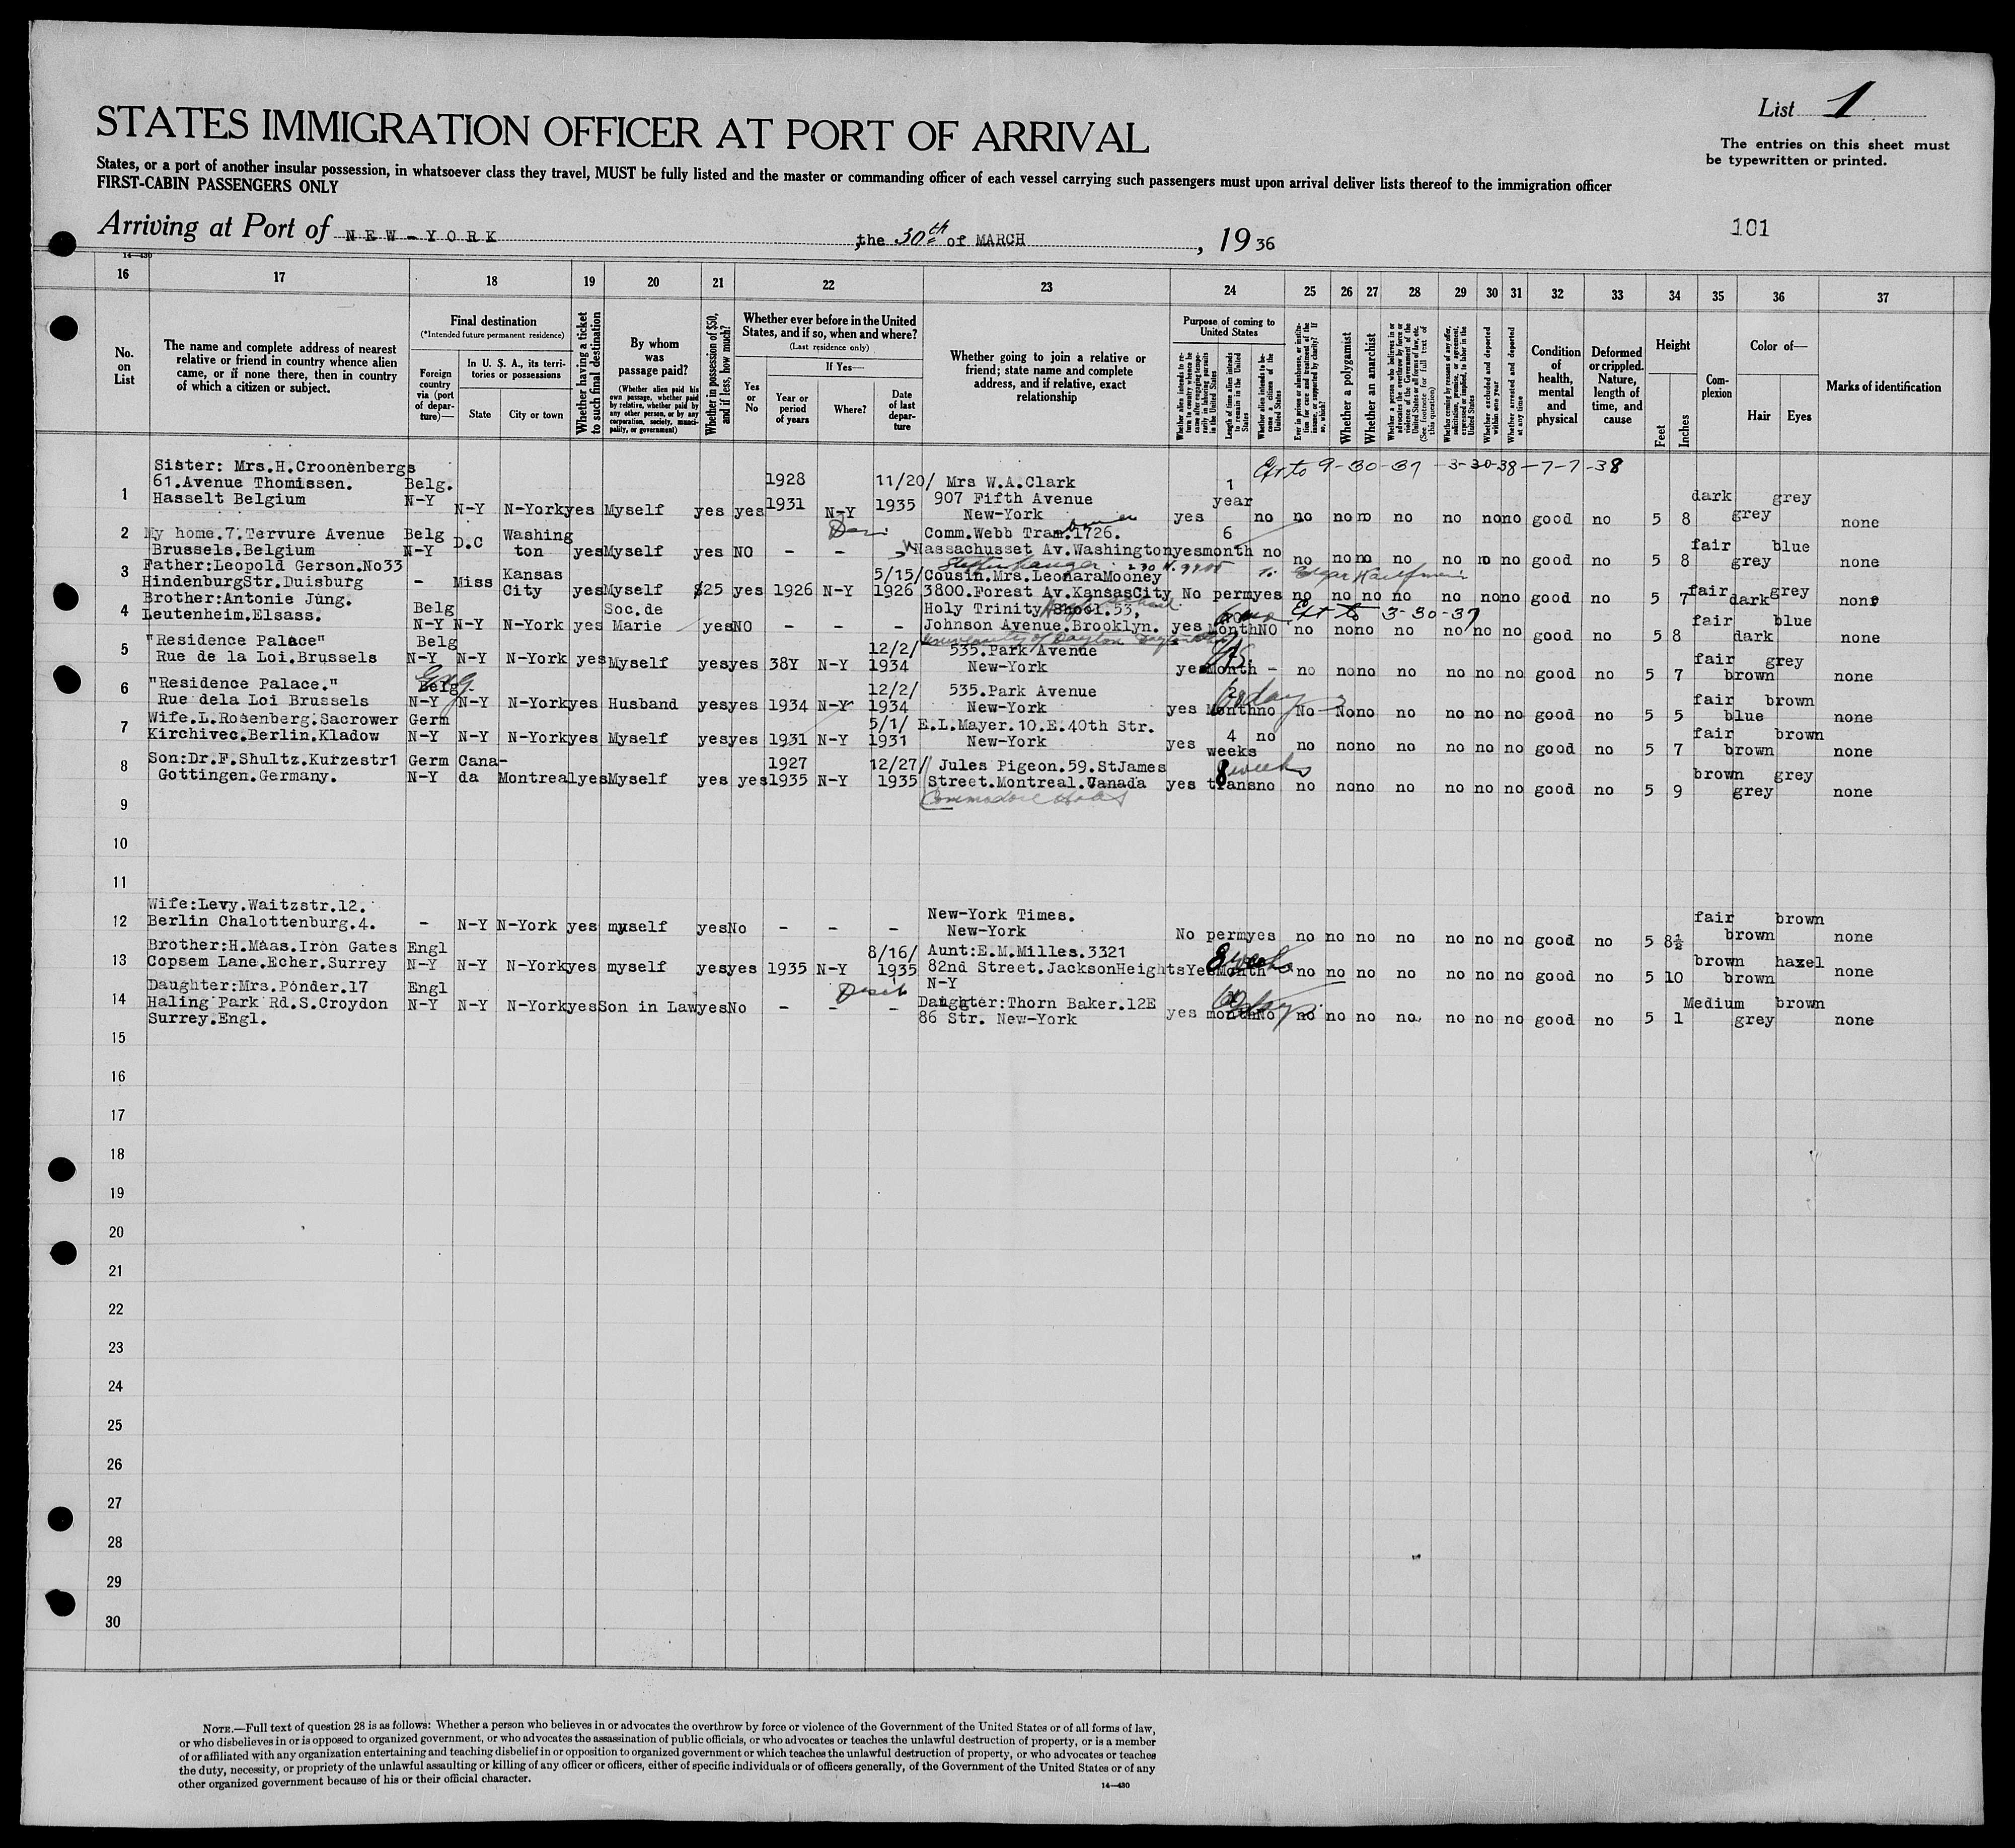 List 1
STATES IMMIGRATION OFFICER AT PORT OF ARRIVAL
The entries on this sheet must
be typewritten or printed.
States, or a port of another insular possession, in whatsoever class they travel, MUST be fully listed and the master or commanding officer of each vessel carrying such passengers must upon arrival deliver lists thereof to the immigration officer
FIRST-CABIN PASSENGERS ONLY
Arriving at Port of NEW-YORK, the 30th of MARCH, 19 36
101
14—430
16 17 18 19 20 21 22 23 24 25 26 27 28 29 30 31 32 33 34 35 36 37
No. on List
The name and complete address of nearest
relative or friend in country whence alien
came, or if none there, then in country
of which a citizen or subject.
Final destination
(*Intended future permanent residence)
Foreign country via (port of departure)—
In U. S. A., its territories or possessions
State
City or town
Whether having a ticket to such final destination
By whom was passage paid?
(Whether alien paid his own passage, whether paid by relative, whether paid by any other person, or by any corporation, society, municipality, or government)
Whether in possession of $50, and if less, how much?
Whether ever before in the United States, and if so, when and where?
(Last residence only)
Yes or No
If Yes—
Year or period of years
Where?
Date of last departure
Whether going to join a relative or friend; state name and complete address, and if relative, exact relationship
Purpose of coming to United States
Whether alien intends to return to country whence he came after engaging temporarily in laboring pursuits in the United States
Length of time alien intends to remain in the United States
Whether alien intends to become a citizen of the United States
Ever in prison or almshouse, or institution for care and treatment of the insane, or supported by charity? If so, which?
Whether a polygamist
Whether an anarchist
Whether a person who believes in or advocates the overthrow by force or violence of the Government of the United States or all forms of law, etc. (See footnote for full text of this question)
Whether coming by reasons of any offer, solicitation, promise, or agreement, expressed or implied, to labor in the United States
Whether excluded and deported within one year
Whether arrested and deported at any time
Condition of health, mental and physical
Deformed or crippled. Nature, length of time, and cause
Height
Feet
Inches
Complexion
Color of—
Hair
Eyes
Marks of identification
Ext to 9-30-37 -3-30-38-7-7-38
Sister: Mrs.H.Croonenbergs 1928 11/20/ Mrs W.A.Clark 1
1 61.Avenue Thomissen. Belg. 907 Fifth Avenue year dark grey
Hasselt Belgium N-Y N-Y N-York yes Myself yes yes 1931 N-Y 1935 New-York yes no no no no no no no no good no 5 8 grey none
2 My home.7.Tervure Avenue Belg D.C Washing Comm.Webb Tram.1726. 6 fair blue
Brussels.Belgium N-Y ton yes Myself yes NO - - - Massachusset Av.Washington yes month no no no no no no no no good no 5 8 grey none
3 Father:Leopold Gerson.No33 Kansas 5/15/ Cousin.Mrs.LeonaraMooney
HindenburgStr.Duisburg - Miss City yes Myself $25 yes 1926 N-Y 1926 3800.Forest Av.KansasCity No perm yes no no no no no no no good no 5 7 fair dark grey none
4 Brother:Antonie Jung. Belg Soc.de Holy Trinity Shool.53, Ext to 3-30-37
Leutenheim.Elsass. N-Y N-Y N-York yes Marie yes NO - - - Johnson Avenue.Brooklyn. yes Month NO no no no no no no no good no 5 8 fair dark blue none
University of Dayton
5 "Residence Palace" Belg 12/2/ 535.Park Avenue
Rue de la Loi.Brussels N-Y N-Y N-York yes Myself yes yes 38Y N-Y 1934 New-York yes month - no no no no no no no good no 5 7 fair brown grey none
6 "Residence Palace." Belg. 12/2/ 535.Park Avenue
Rue dela Loi Brussels N-Y N-Y N-York yes Husband yes yes 1934 N-Y 1934 New-York yes Month no No No no no no no no good no 5 5 fair blue brown none
7 Wife.L.Rosenberg.Sacrower Germ 5/1/ E.L.Mayer.10.E.40th Str.
Kirchivec.Berlin.Kladow N-Y N-Y N-York yes Myself yes yes 1931 N-Y 1931 New-York yes 4 weeks no no no no no no no no good no 5 7 fair brown brown none
8 Son:Dr.F.Shultz.Kurzestr1 Germ Cana- 1927 12/27/ Jules Pigeon.59.StJames 8 weeks
Gottingen.Germany. N-Y da Montreal yes Myself yes yes 1935 N-Y 1935 Street.Montreal.Canada yes trans no no no no no no no no good no 5 9 brown grey grey none
9 Commodore Hotel
10
11
12 Wife:Levy.Waitzstr.12. New-York Times.
Berlin Chalottenburg.4. - N-Y N-York yes myself yes No - - - New-York No perm yes no no no no no no no good no 5 8½ fair brown brown none
13 Brother:H.Maas.Iron Gates Engl 8/16/ Aunt:E.M.Milles.3321 8 weeks
Copsem Lane.Echer.Surrey N-Y N-Y N-York yes myself yes yes 1935 N-Y 1935 82nd Street.JacksonHeights Yes Month no no no no no no no good no 5 10 brown brown hazel none
N-Y
14 Daughter:Mrs.Ponder.17 Engl Daughter:Thorn Baker.12E 60 days
Haling Park Rd.S.Croydon N-Y N-Y N-York yes Son in Law yes No - - - 86 Str. New-York yes month No no no no no. no no no good no 5 1 Medium grey brown none
Surrey.Engl.
15
16
17
18
19
20
21
22
23
24
25
26
27
28
29
30
NOTE.—Full text of question 28 is as follows: Whether a person who believes in or advocates the overthrow by force or violence of the Government of the United States or of all forms of law,
or who disbelieves in or is opposed to organized government, or who advocates the assassination of public officials, or who advocates or teaches the unlawful destruction of property, or is a member
of or affiliated with any organization entertaining and teaching disbelief in or opposition to organized government or which teaches the unlawful destruction of property, or who advocates or teaches
the duty, necessity, or propriety of the unlawful assaulting or killing of any officer or officers, either of specific individuals or of officers generally, of the Government of the United States or of any
other organized government because of his or their official character.
14—430